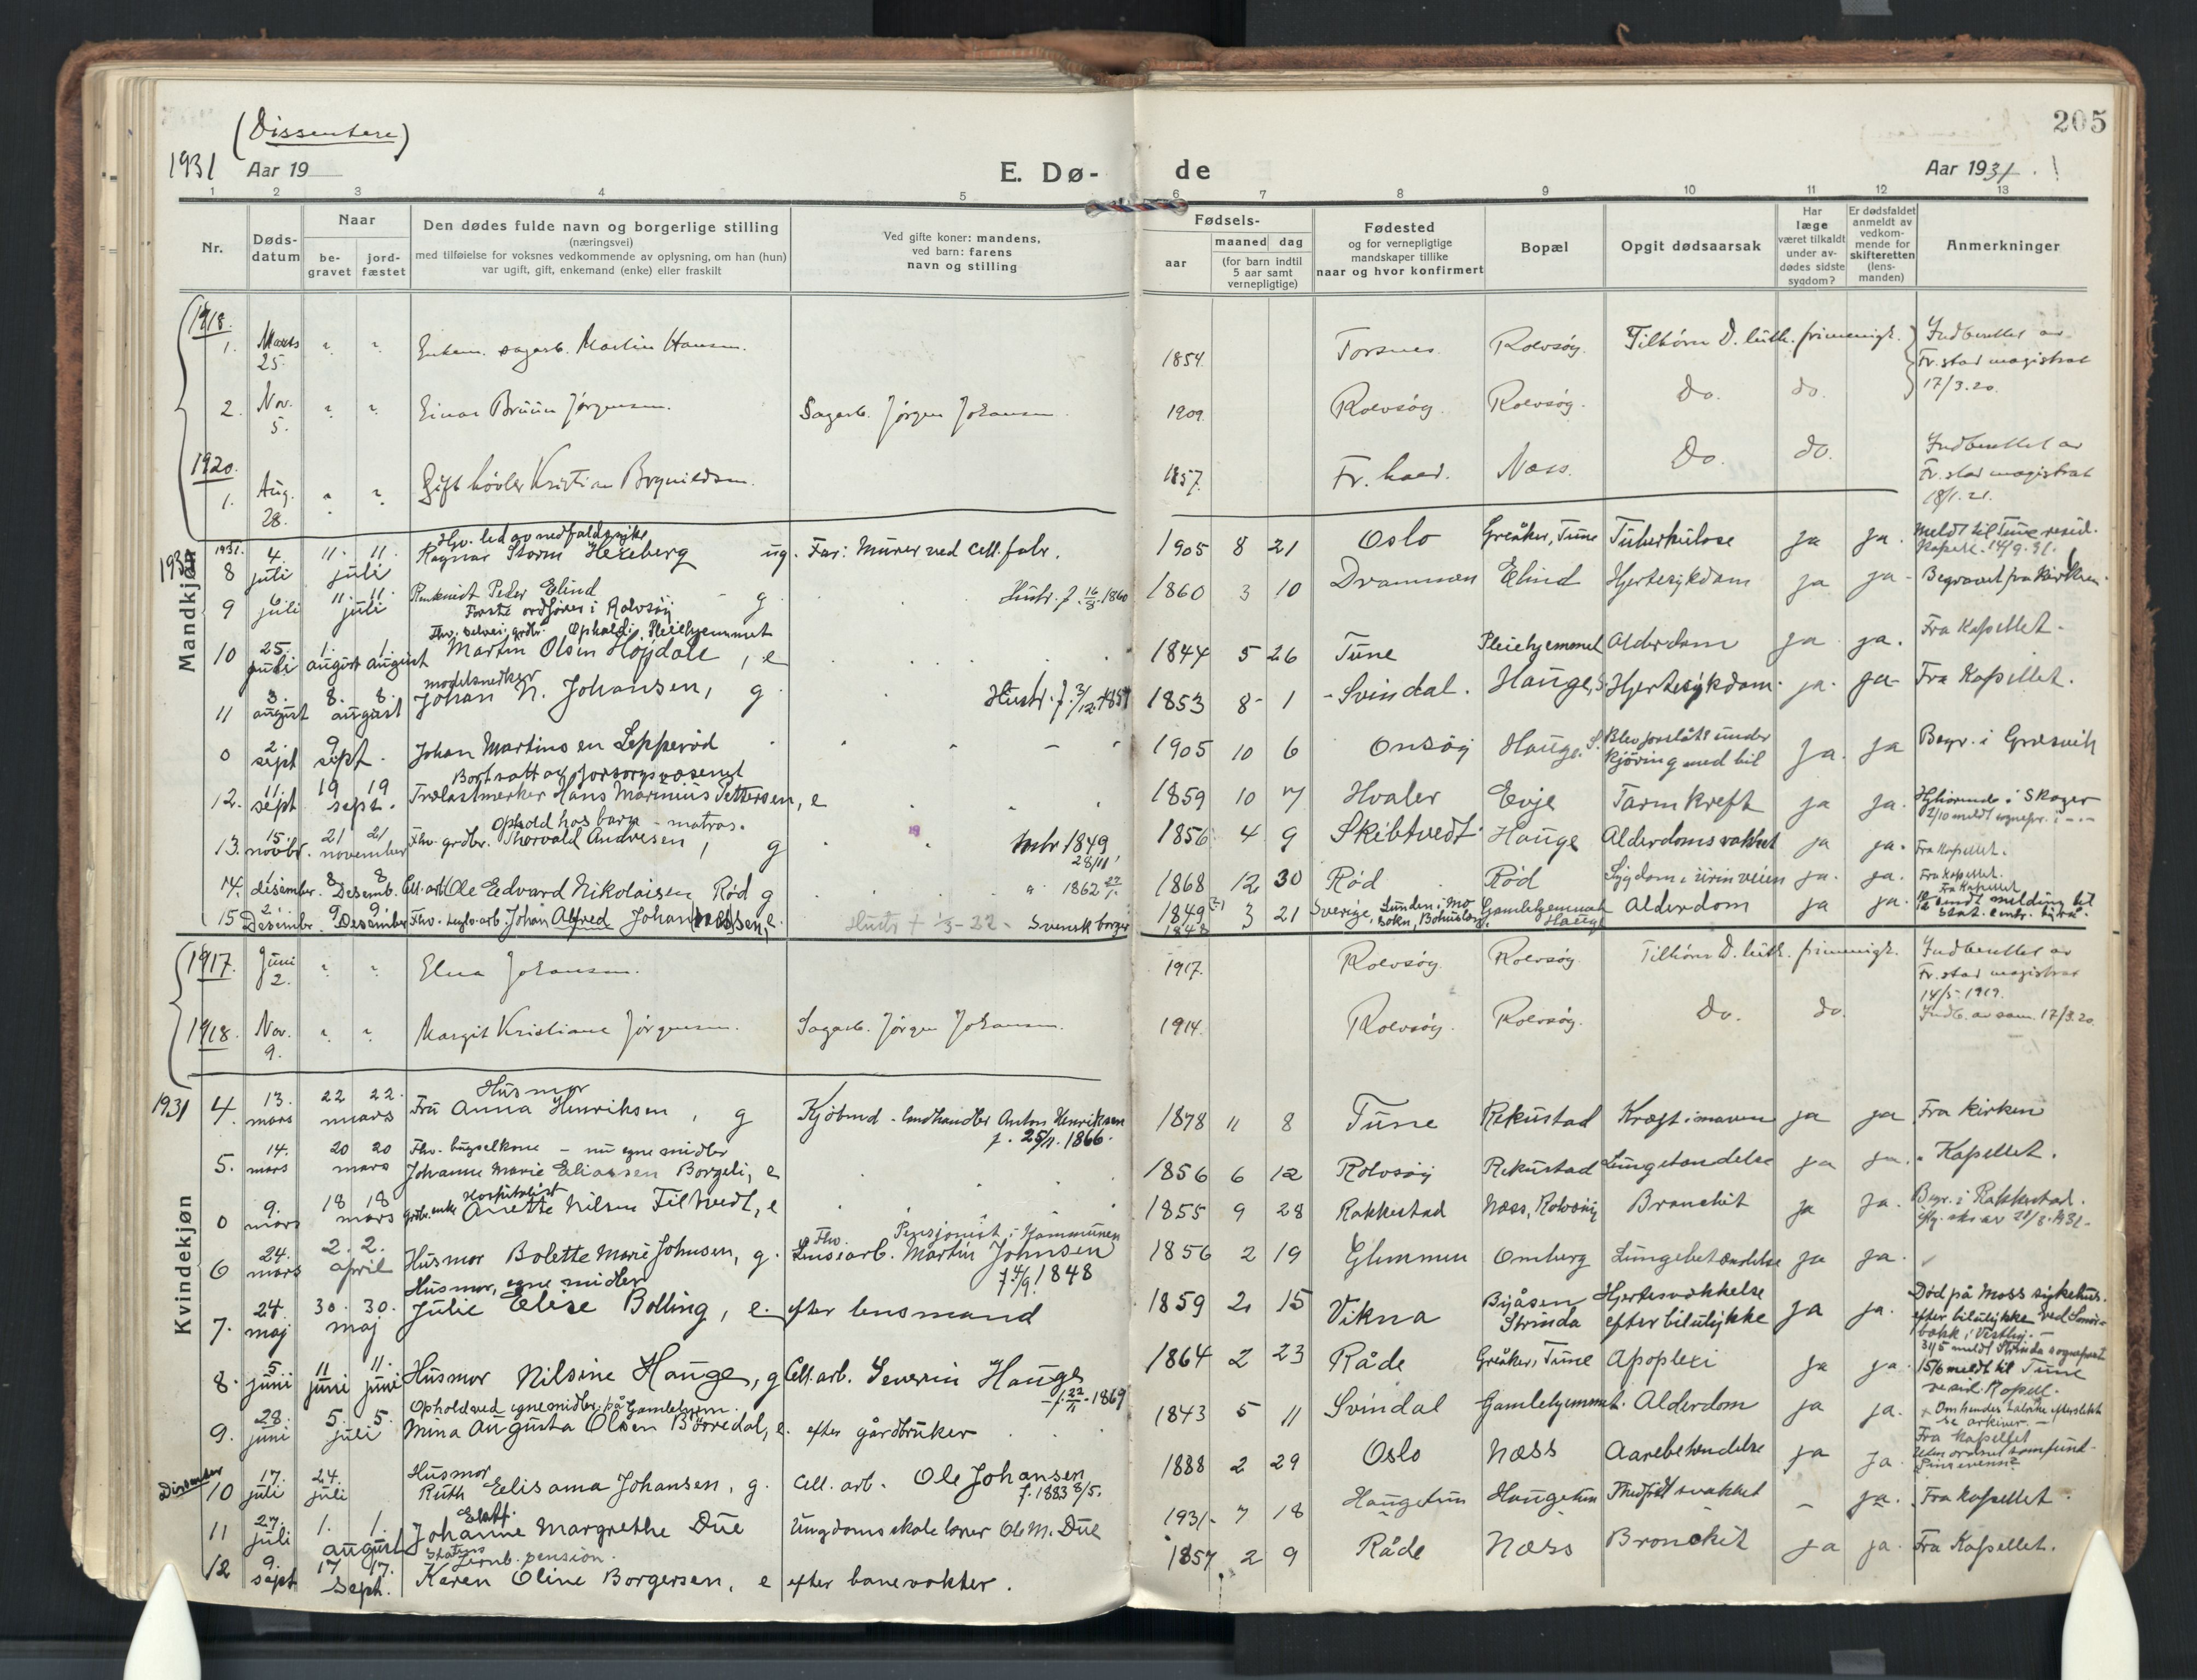 (Dissentere)
205
1931 Aar 19
E. Dø-
de
Aar 1931.
1 2 3 4 5 6 7 8 9 10 11 12 13
Nr.
Døds-
datum
Naar
be-
gravet
jord-
fæstet
Den dødes fulde navn og borgerlige stilling
(næringsvei)
med tilføielse for voksnes vedkommende av oplysning, om han (hun)
var ugift, gift, enkemand (enke) eller fraskilt
Ved gifte koner: mandens,
ved barn: farens
navn og stilling
Fødsels-
aar
maaned dag
(for barn indtil
5 aar samt
vernepligtige)
Fødested
og for vernepligtige
mandskaper tillike
naar og hvor konfirmert
Bopæl
Opgit dødsaarsak
Har
læge
været tilkaldt
under av-
dødes sidste
sygdom?
Er dødsfaldet
anmeldt av
vedkom-
mende for
skifteretten
(lens-
manden)
Anmerkninger
Mandkjøn
1918.
1. Marts 25. Enkem. sagarb. Martin Hansen. 1854. Torsnes Rolvsøy. Tilhørn D. luth. frimenigh. Indberettet av
Fr.stad magistrat
17/3.20.
2. Nov. 5. Einar Bruun Jørgensen. Sagarb. Jørgen Johansen 1909 Rolvsøy. Rolvsøy. Do. do.
1920.
1. Aug. 28. Gift høvler Kristian 1857 Fr. hald. Næss. Do. do. Indberettet av
Fr. stad magistrat
18/1.21.
1931.
8 4. juli 11. 11. juli Ragnar Storm Hexeberg ug. Far: Murer ved cell. fabr. 1905 8 21 Oslo Greåker, Tune Tuberkulose ja ja. Meldt til Tune resid.
Kapell. 14/9.31.
9 6 juli 11. 11. juli Peder Elind g
Første ordfører i Rolvsøy Hustr. f. 16/8.1860 1860 3 10 Drammen Elind Hjertesykdom ja ja Begravet fra Kirken.
Fhv. selvei. grdbr. Ophold i Pleiehjemmet
10 25. juli 1. august 1. august Martin Olsen Høydahl, e 1844 5 26 Tune Pleiehjemmet Alderdom ja ja. Fra Kapellet.
modelsnedker
11 3. august 8. 8. august Johan N. Johansen, g Hustr. f. 3/12.1857 1853 8 1 Svindal. Hauge, S. Hjertesykdom ja ja Fra Kapellet.
0 2. sept 9 sept. Johan Martinsen Lepperød 1905 10 6 Onsøy Hauge. S. Blev forslått under
kjøring med bil ja. ja Begr. i Gresvik
Bortsatt av forsorgsvæsenet
12. 11. sept 19 19 sept. Trælastmerker Hans Marinius Pettersen, e 1859 10 7 Hvaler Evje Tarmkreft ja ja. Hjhørende i Skoger
2/10 meldt sognepr. i -.-
Ophold hos barn
13. 15. novbr. 21 21 november Fhv. grdbr. Thorvald Andresen, g 1849
28/11 1856 4 9 Skibtvedt Hauge Alderdomssvakhet ja ja. Fra Kapellet.
14. 1 desember. 8 8 Desemb. Cell. arb. Ole Edvard Nikolaisen Rød g 1862 22/1. 1868 12 30 Rød Rød Sygdom i urinveien ja. ja. Fra Kapellet.
15 2 Desembr. 9 9 Desember Fhv. arb. Johan Alfred Johannessen, e. Hustr + 1/3-22 - Svensk borger 1849 1848 3 21 Sverige, Lunden i Mo
sokn, Bohuslän. Gamlehjemmet
Hauge Alderdom ja ja. Fra Kapellet
sendt melding til
Kvindekjøn
1917. Juni 2. Elna Johansen. 1917. Rolvsøy Rolvsøy Tilhørn D. luth. frimenigh. Indberettet av
Fr.stad magistrat
14/5-1919.
1918. Nov. 9. Margit Kristiane Jørgensen. Sagarb. Jørgen Johansen. 1914. Rolvsøy. Rolvsøy. Do. do. Indb. av sam. 17/3.20.
Husmor
1931 4. 13. mars 22 22. mars Fru Anna Henriksen, g Kjøbmd - landhandler Anton Henriksen
f. 25/1.1866. 1878 11 8 Tune Rekustad Kræft i maven ja ja Fra kirken
Fhv. bugselkone - nu egne midler
5. 14. mars 20 20 mars Johanne Marie Eliassen Borgeli, e 1856 6 12 Rolvsøy Rekustad Lungebetændelse ja ja. " Kapellet.
Hospitalist
0 9. mars 18 18 mars grdbr. enke Anette Nilsen Filtvedt, e 1855 9 28 Rakkestad Næss, Rolvsøy Bronchit ja ja. Begr. i Rakkestad.
6 24. mars 2. 2. april Husmor Bolette Marie Johnsen, g. Fhv. Pensjonist i Kommunen
Lensearb. Martin Johnsen
f. 4/9.1848 1856 2 19 Glemmen Omberg Lungebetændelse ja ja.
Husmor, egne midler
7. 24. maj 30. 30. maj Julie Elise Bolling, e. efter lensmand 1859 2 15 Vikna Byåsen
Strinda Hjertesvækkelse
efter bilulykke ja ja. Død på Moss sykehus.
efter bilulykke ved
i Vestby.
31/5 meldt Strinda sogneprest
8. 5 juni 11 juni 11. juni Husmor Nilsine Hauge, g Cell. arb. Severin Hauge
f. 22/11-1869 1864 2 23 Råde Greåker, Tune Apoplexi ja ja. 15/6 meldt til Tune
resid. Kapell.
Ophold ved egne midler på Gamlehjem.
9. 28. juni 5. 5. juli Mina Augusta Olsen Børredal, e. efter gårdbruker 1843 5 11 Svindal Gamlehjemmet. Alderdom ja ja. + Om hendes talrike efterslekt
se arkivet.
Fra Kapellet
Dissenter Husmor
10 17. juli 24. juli Ruth Elisama Johansen, g. Cell. arb. Ole Johansen
f. 1883 8/5. 1888 2 29 Oslo Næss Aarebetendelse ja ja
Pinsevenn?
11 27. juli 1. 1. august Johanne Margrethe Due Ungdomsskolelærer Ole M. Due 1931. 7 18 Haugetun Haugetun Medfødt svakhet - ja. Fra Kapellet.
Statens Jernb. pension.
12 9. sept 17 17. sept. Karen Oline Borgersen, e efter banevokter. 1857 2 9 Råde Næss Bronckit ja ja. Fra Kapellet.